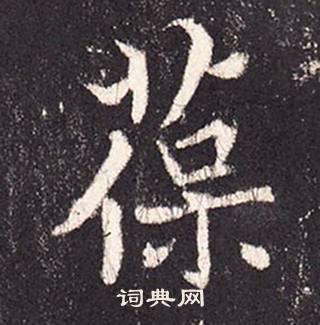 葆
词典网